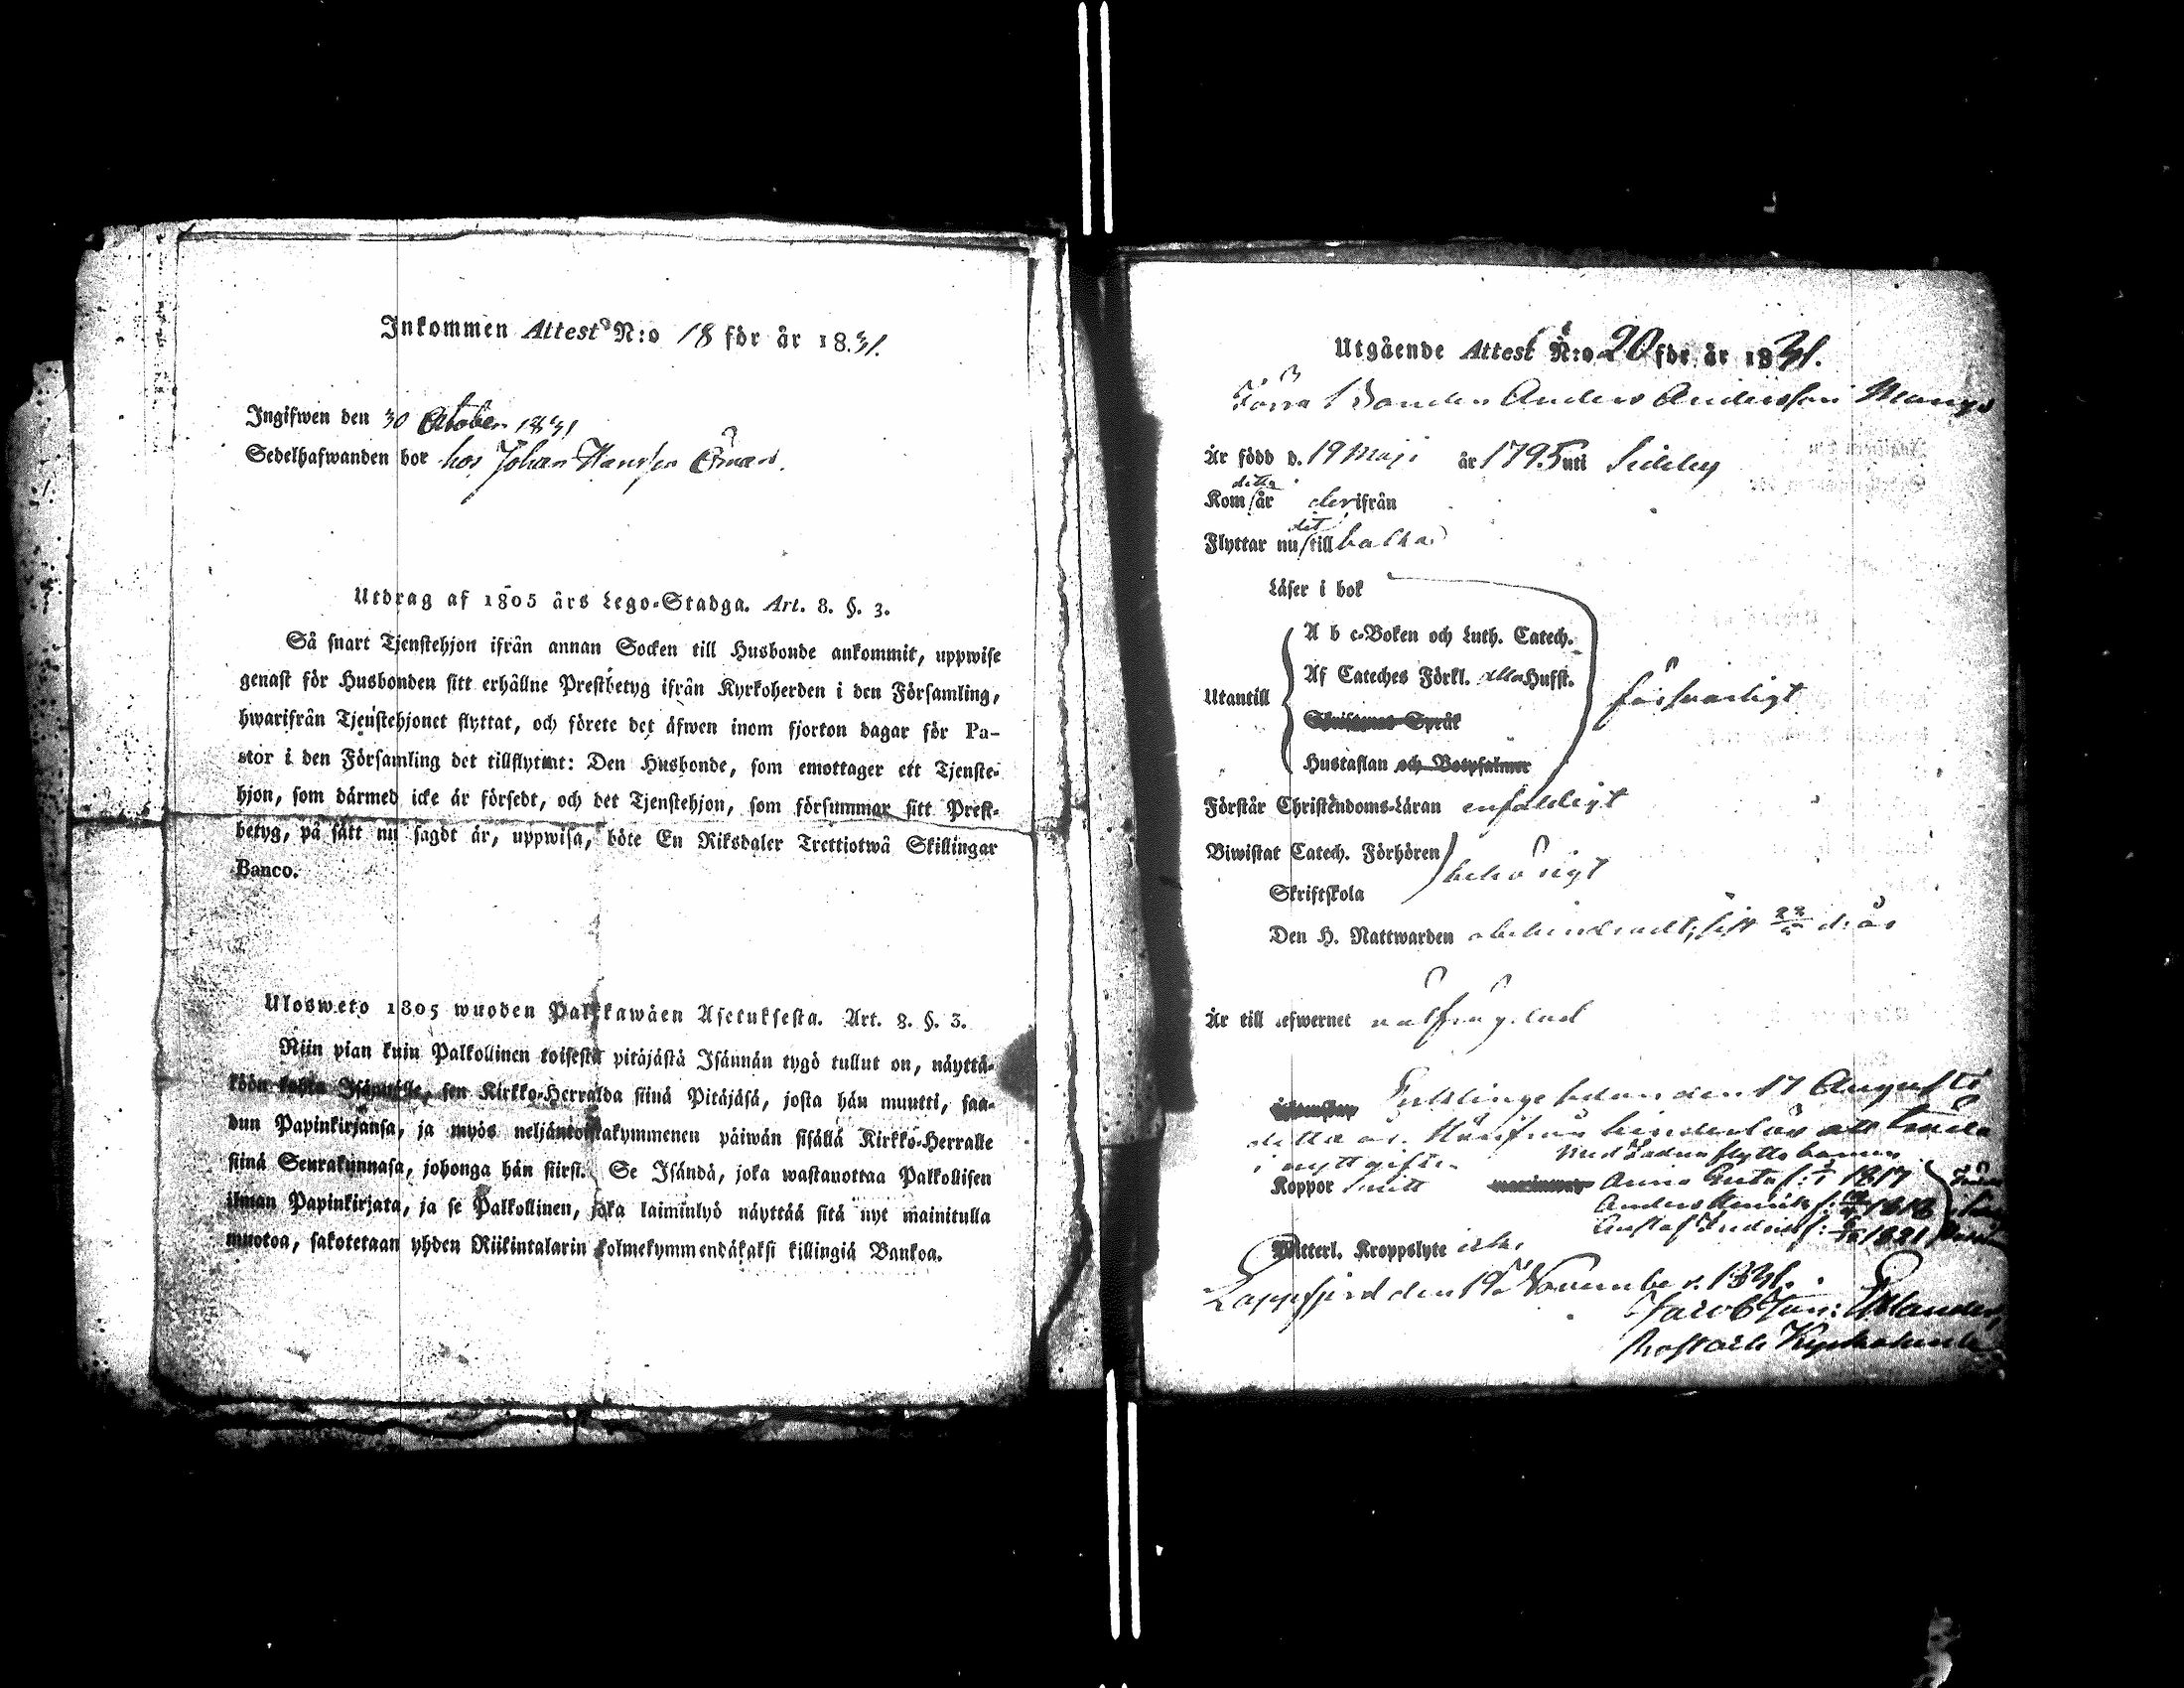 Inkommen Attest N:o 18 för år 1831.
Ingifwen den 30 October 1831
Sedelhafwanden bor hos Johan Hansson Öman.
Utdrag af 1805 års Lego-Stadga. Art. 8. §. 3.
Så snart Tjenstehjon ifrån annan Socken till Husbonde ankommit, uppwise
genast för Husbonden sitt erhållne Prestbetyg ifrån Kyrkoherden i den Församling,
hwarifrån Tjenstehjonet flyttat, och förete det äfwen inom fjorton dagar för Pa-
stor i den Församling det tillflyttat: Den Husbonde, som emottager ett Tjenste-
hjon, som därmed icke är försedt, och det Tjenstehjon, som försummar sitt Prest-
betyg, på sätt nu sagdt är, uppwisa, böte En Riksdaler Trettiotwå Skillingar
Banco.
Ulosweto 1805 wuoden Palkkawäen Asetuksesta. Art. 8. §. 3.
Niin pian kuin Palkollinen toisesta pitäjästä Isännän tygö tullut on, näyttä-
köön kohta Isännälle, sen Kirkko-Herralda siinä Pitäjäsä, josta hän muutti, saa-
dun Papinkirjansa, ja myös neljäntoistakymmenen päiwän sisällä Kirkko-Herralle
siinä Seurakunnasa, johonga hän siirsi. Se Isändä, joka wastanottaa Palkollisen
ilman Papinkirjata, ja se Palkollinen, joka laiminlyö näyttää sitä nyt mainitulla
muotoa, sakotetaan yhden Riikintalarin kolmekymmendäkaksi killingiä Bankoa.
Utgående Attest N:o 20 för år 1831.
Förra Bonden Anders Andersson Mangs
Är född d. 19 Maji år 1795 uti Sideby
Kom ditto år derifrån
Flyttar nu det till baka
Läser i bok
A b c-Boken och Luth. Catech.
Af Cateches Förkl. alla Hufst.
Utantill försvarligt
Skriftenes Språk
Hustaflan och Botpsalmer
Förstår Christendoms-Läran enfaldigt
Biwistat Catech. Förhören
behörigt
Skriftskola
Den H. Nattwarden obehindradt, sist d. år
Är till lefwernet välfrägdad
Enklinge sedan den 17 Augusti
detta år. Härifrån hinderlös att träda
i nytt gifte. Med Fadren flytta barnen
Koppor haft Anna Greta f: 1817
Anders Henrik f: 1818
Gustaf Fredric f: 1821
Witterl. Kroppslyte icke
Lappfjerd den 19 November 1831.
Jacob Jon: Estlander,
Prost och Kyrkoherde